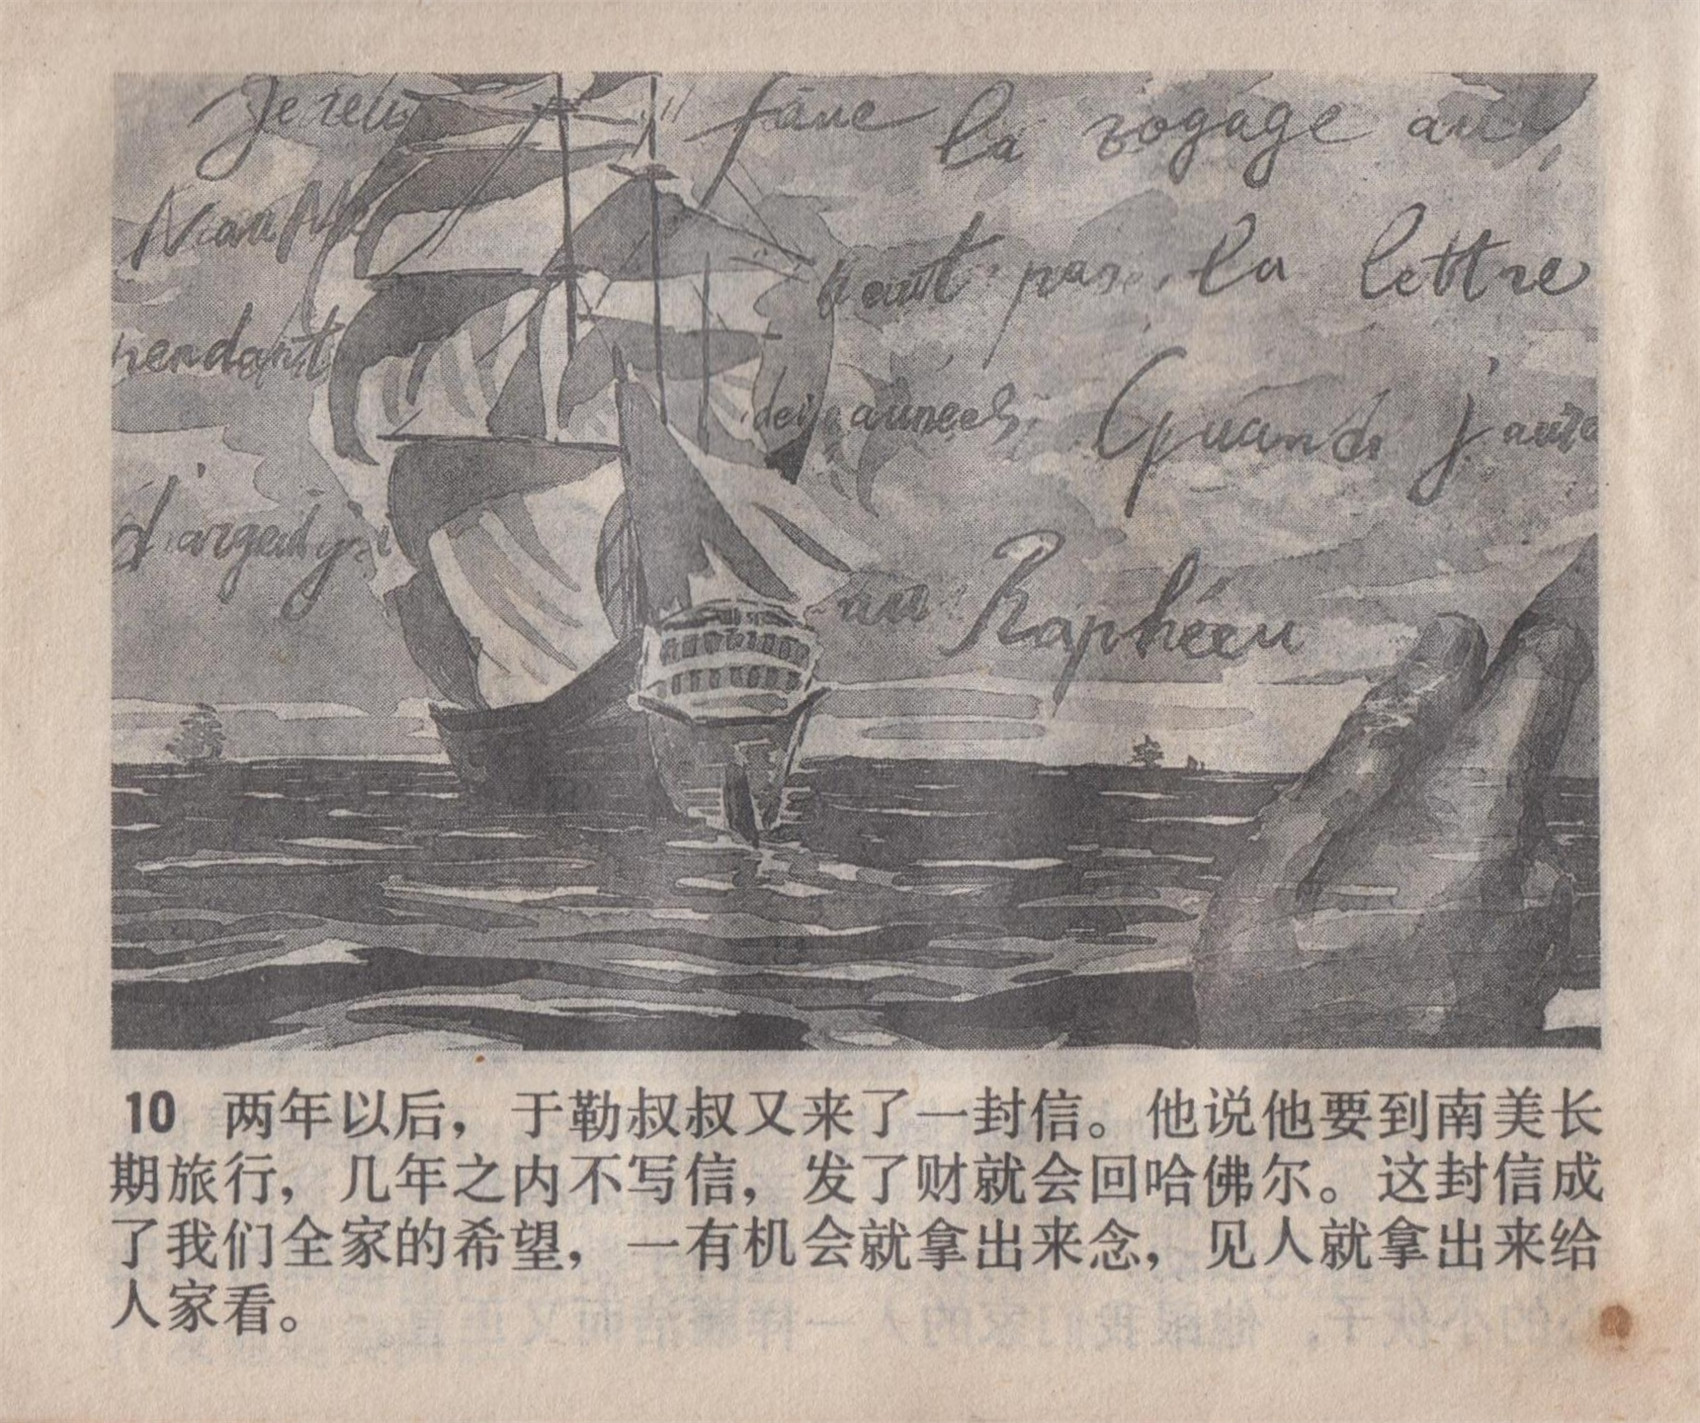 la vogage au
pas, la lettre
pendant
années, Quand j'aura
d'argent
au Raphéeu
10 两年以后，于勒叔叔又来了一封信。他说他要到南美长
期旅行，几年之内不写信，发了财就会回哈佛尔。这封信成
了我们全家的希望，一有机会就拿出来念，见人就拿出来给
人家看。